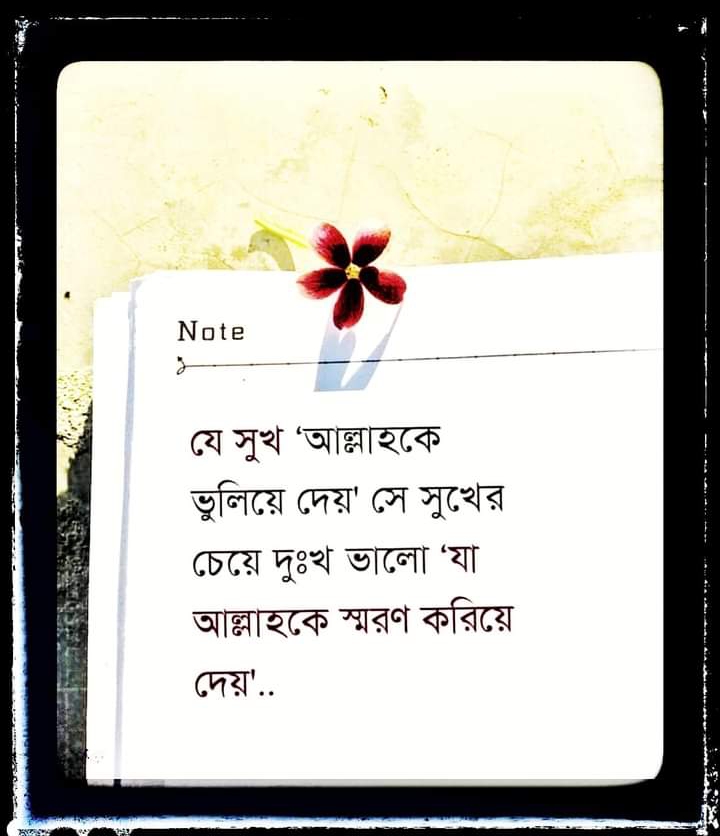 Note
যে সুখ ‘আল্লাহকে
ভুলিয়ে দেয়' সে সুখের
চেয়ে দুঃখ ভালো ‘যা
আল্লাহকে স্মরণ করিয়ে
দেয়'..